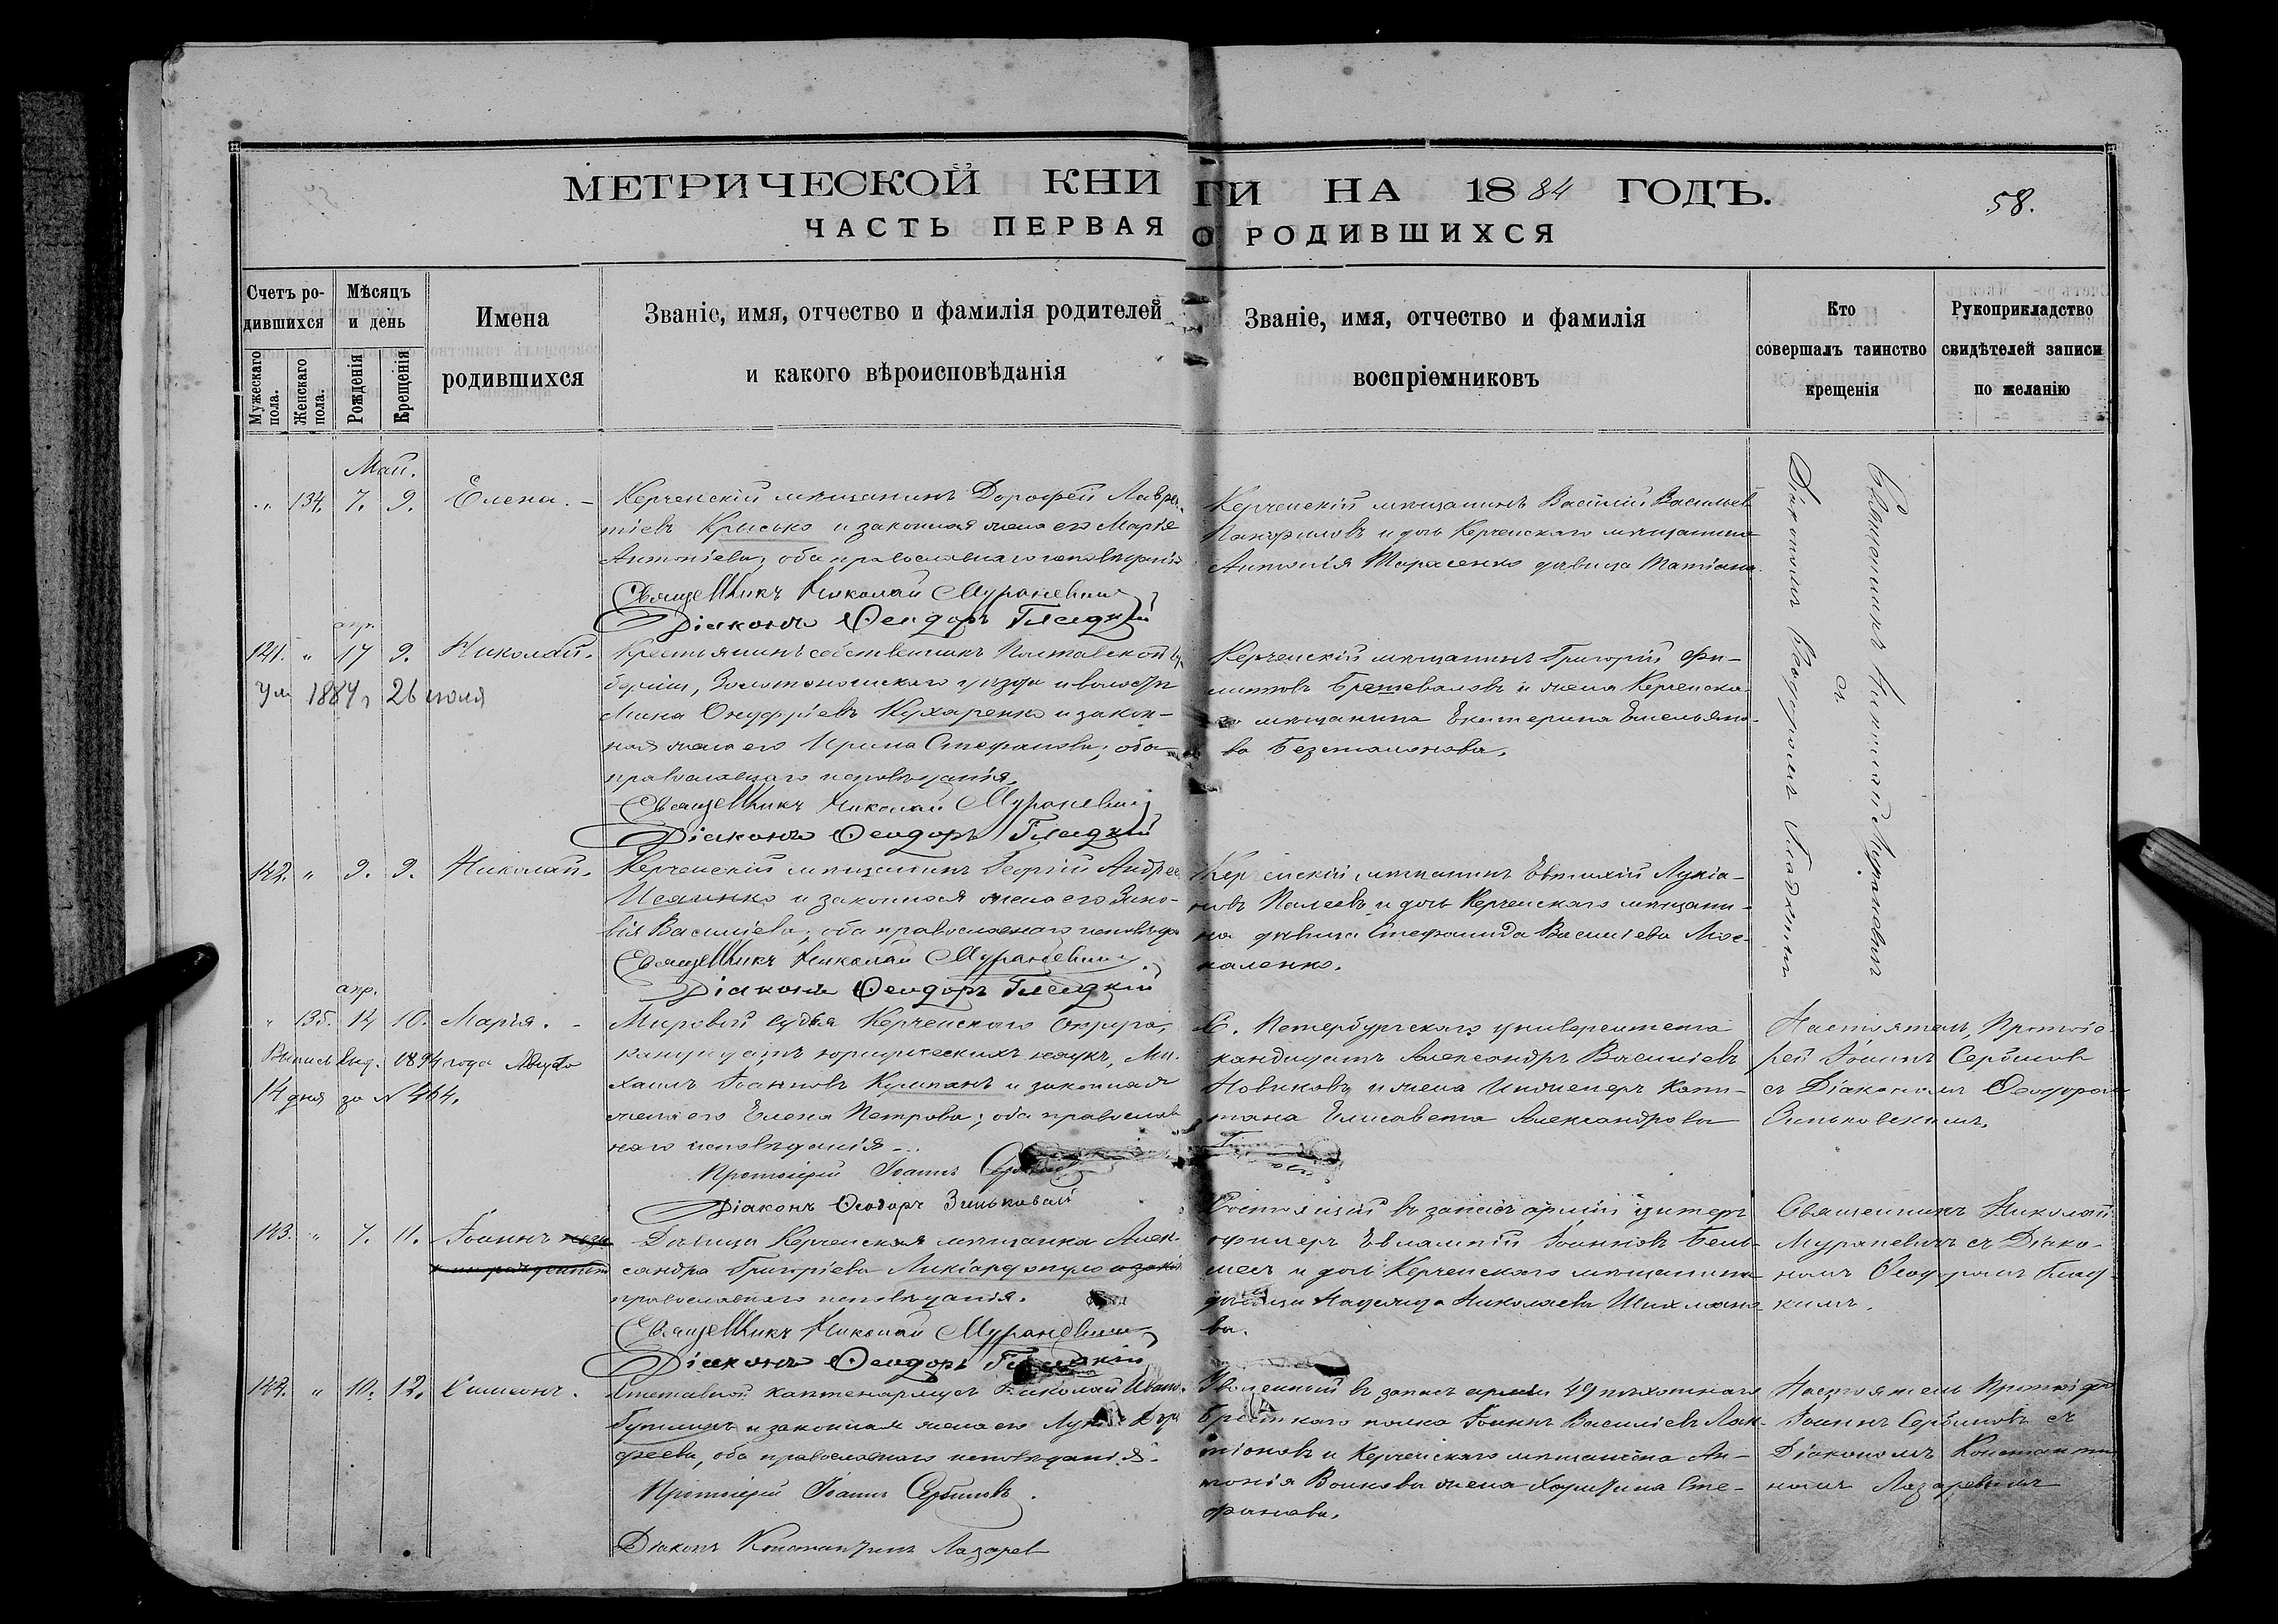 МЕТРИЧЕСКОЙ КНИГИ НА 1884 ГОДЪ.
58.
ЧАСТЬ ПЕРВАЯ О РОДИВШИХСЯ
Счетъ родившихся
Мужескаго пола.
Женскаго пола.
Мѣсяцъ и день
Рожденія
Крещенія
Имена родившихся
Званіе, имя, отчество и фамилія родителей
и какого вѣроисповѣданія
Званіе, имя, отчество и фамилія
воспріемниковъ
Кто
совершалъ таинство
крещенія
Рукоприкладство
свидѣтелей записи
по желанію
Май.
" 134. 7. 9. Елена. –
Керченскій мѣщанинъ Дорофей Лаврен-
тіевъ Крисько и законная жена его Марія
Антоніева; оба православнаго
Священникъ Николай Мураневич
Діаконъ Ѳеодоръ Гладкій
Керченскій мѣщанинъ Василій Васильевъ
Панфиловъ и дочь Керченскаго мѣщанина
Антонія Тарасенко дѣвица Татіана
Священникъ Николай Мураневичъ
съ
Діакономъ Ѳеодоромъ Гладкимъ
апр.
141. " 17 9. Николай.
Ум 1884 г 26 июля
Крестьянинъ собственникъ Полтавской гу-
берніи, Золотоношскаго уѣзда и волости
Мина Онуфріевъ Кухаренко и закон-
ная жена его Ирина Стефанова; оба
православнаго исповѣданія.
Священникъ Николай Мураневич
Діаконъ Ѳеодоръ Гладкій
Керченскій мѣщанинъ Григорій Фи-
липповъ и жена Керченска-
го мѣщанина Екатерина Емельяно-
ва Безталанова.
142. " 9. 9. Николай.
Керченскій мѣщанинъ Георгій Андрее
и законная жена его Зино-
вія Васильева; оба православнаго исповѣда
Священникъ Николай Мураневич
Діаконъ Ѳеодоръ Гладкій
Керченскій мѣщанинъ Евтихій Лукіа-
новъ и дочь Керченскаго мѣщани-
на дѣвица Стефанида Васильева Мос-
каленко.
апр.
" 135. 14 10. Марія. –
Выпись выд. 1894 года Августа
14 дня за № 464.
Мировой судья Керченскаго Округа,
кандидатъ юридическихъ наукъ, Ми-
хаилъ Іоанновъ Кумпанъ и законная
жена его Елена Петрова; оба православ
наго исповѣданія
Протоіерей Іоаннъ
Діаконъ Ѳеодоръ Зиньковскій
С. Петербургскаго университета
кандидатъ Александръ Васильевъ
Новиковъ и жена Инженеръ Капи-
тана Елисавета Александрова
Настоятель, Протоіе-
рей Іоаннъ Сербиновъ
съ Діакономъ Ѳеодоромъ
Зиньковскимъ.
143. " 7. 11. Іоаннъ
Дѣвица Керченская мѣщанка Алек-
сандра Григоріева Ликіардопуло
православнаго исповѣданія.
Священникъ Николай Мураневич
Діаконъ Ѳеодоръ Гладкій
Состоящій въ запасѣ арміи унтеръ
офицеръ Евлампій Іоанновъ
и дочь Керченскаго мѣщанина
дѣвица Надежда Николаева
ва.
Священникъ Николай
Мураневичъ съ Діако-
номъ Ѳеодоромъ Глад-
кимъ.
144. " 10. 12. Симеонъ.
каптенармусъ Николай Ивано
и законная жена его
феева, оба православнаго исповѣданія.
Протоіерей Іоаннъ Сербиновъ.
Діаконъ Константинъ Лазарев
Уволенный въ запасъ арміи 49 пѣхотнаго
Брестскаго полка Іоаннъ Васильевъ
и Керченскаго мѣщанина Ан-
тонія Волкова жена Харитина Сте-
фанова.
Настоятель Протоіерей
Іоаннъ Сербиновъ съ
Діакономъ Константи
номъ Лазаревымъ